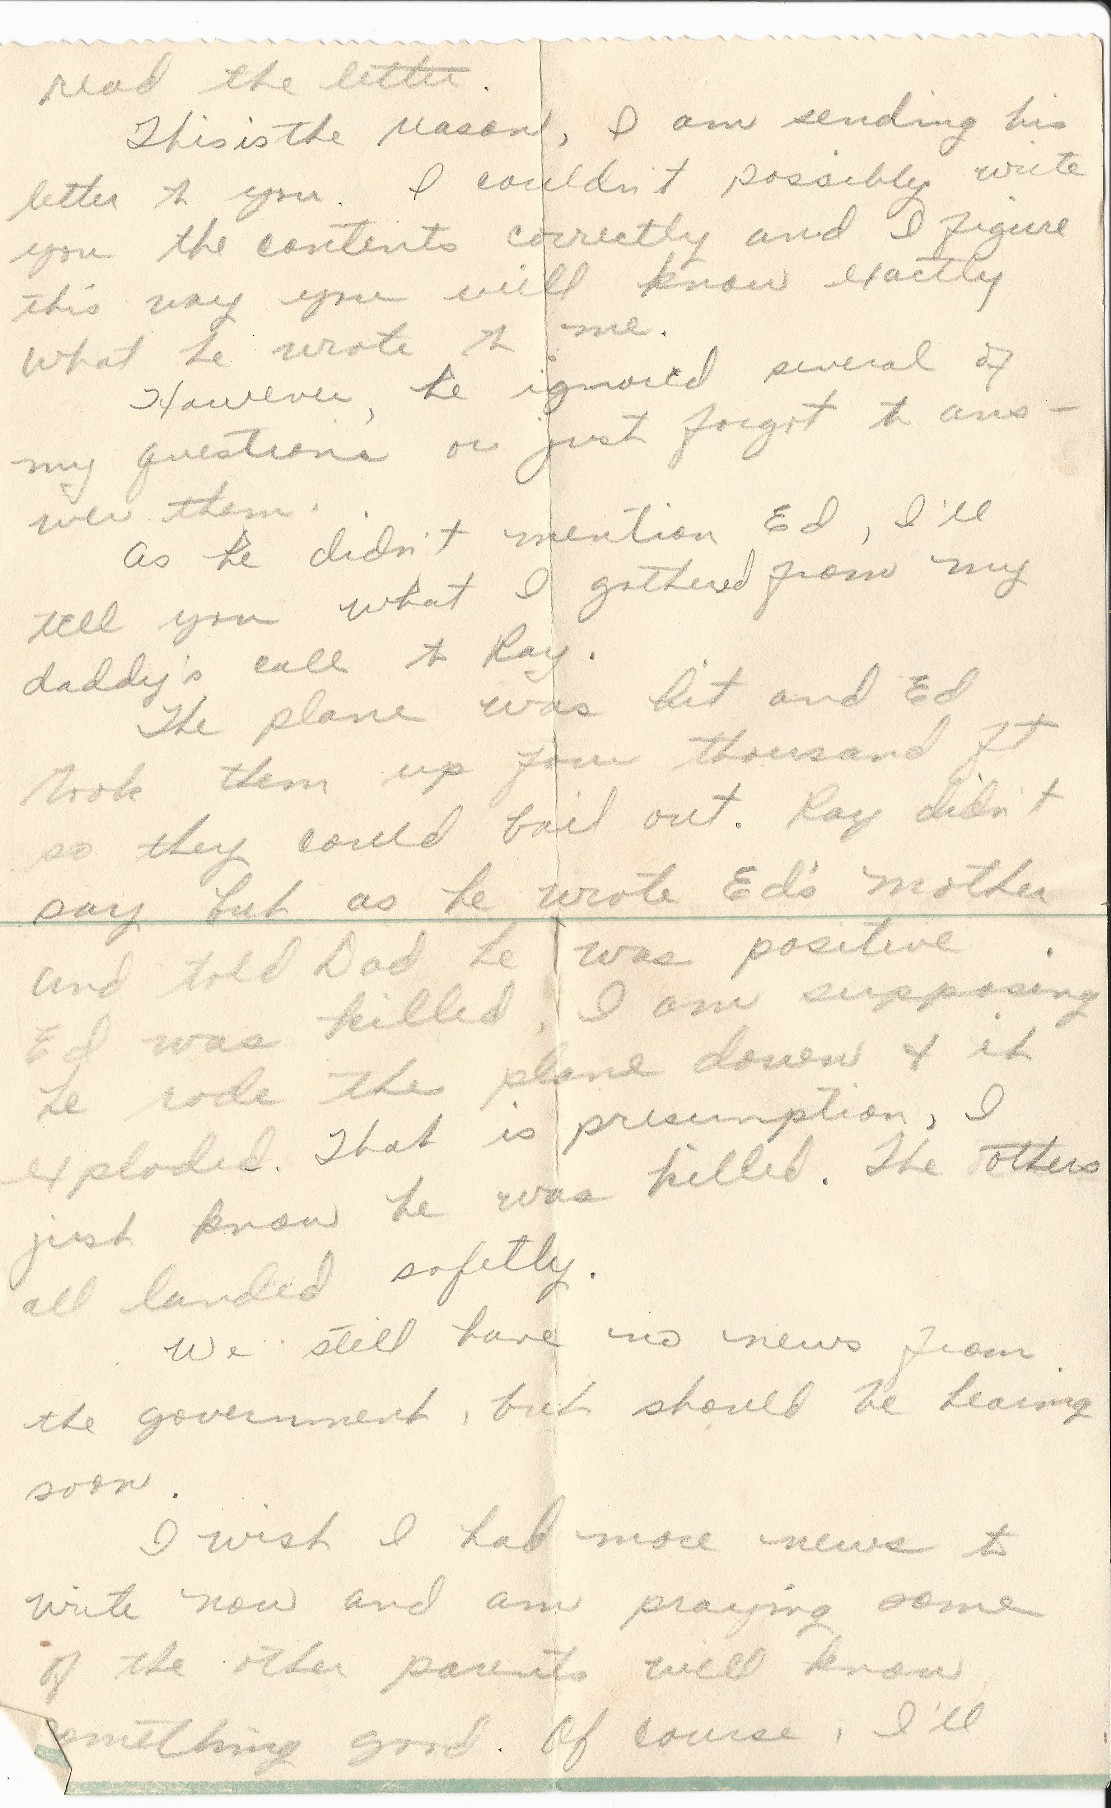 read the letter.
This is the reason, I am sending his
letter to you. I couldn't possibly write
you the contents correctly and I figure
this way you will know exactly
what he wrote to me.
However, he ignored several of
my questions or just forgot to ans-
wer them.
As he didn't mention Ed, I'll
tell you what I gathered from my
daddy's call to Ray.
The plane was hit and Ed
took them up four thousand ft
so they could bail out. Ray didn't
say but as he wrote Ed's mother
and told Dad he was positive
Ed was killed, I am supposing
he rode the plane down & it
exploded. That is presumption, I
just know he was killed. The others
all landed safetly.
We still have no news from
the government, but should be hearing
soon.
I wish I had more news to
write now and am praying some
of the other parents will know
something good. Of course, I'll